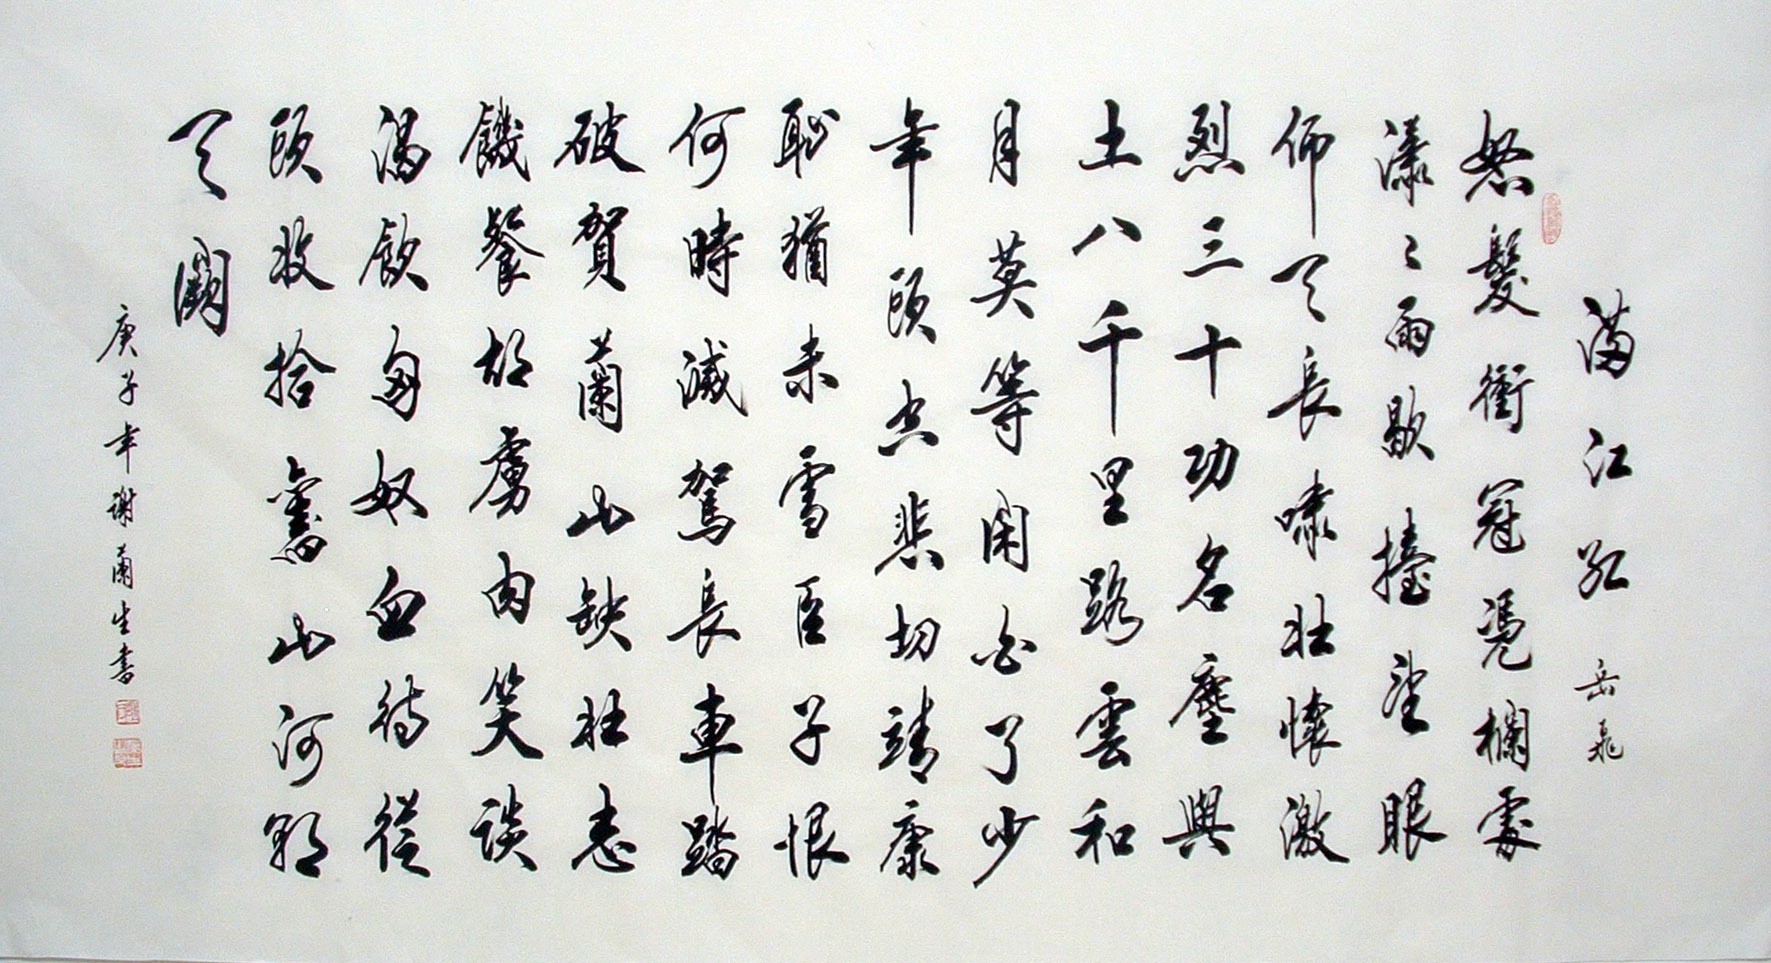 滿江紅 岳飛
怒髮衝冠憑欄處
瀟々雨歇擡望眼
仰天長嘯壯懷激
烈三十功名塵與
土八千里路雲和
月莫等閑白了少
年頭空悲切靖康
耻猶未雪臣子恨
何時滅駕長車踏
破賀蘭山缺壯志
饑餐胡虜肉笑談
渴飲匈奴血待從
頭收拾舊山河朝
天闕
庚子年謝蘭生書